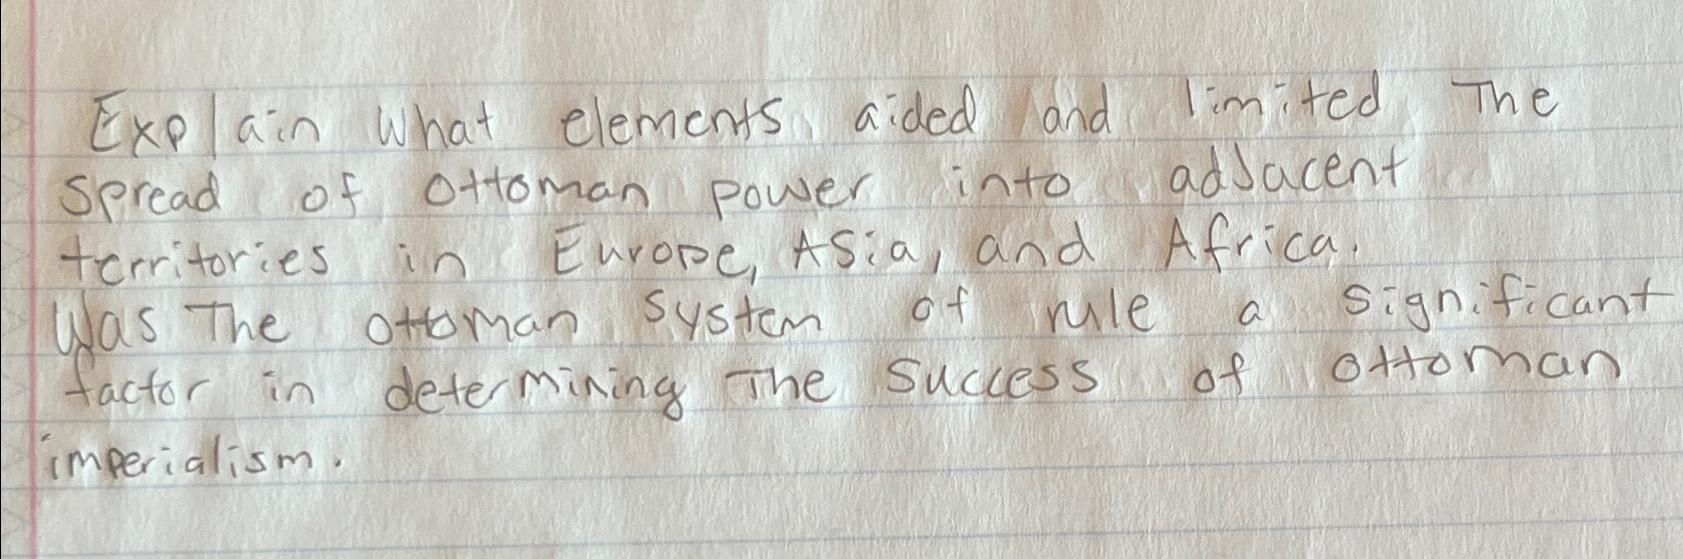 Explain what elements aided and limited The
spread of ottoman power into adjacent
territories in Europe, Asia, and Africa.
Was The ottoman system of rule a significant
factor in determining The success of ottoman
imperialism.